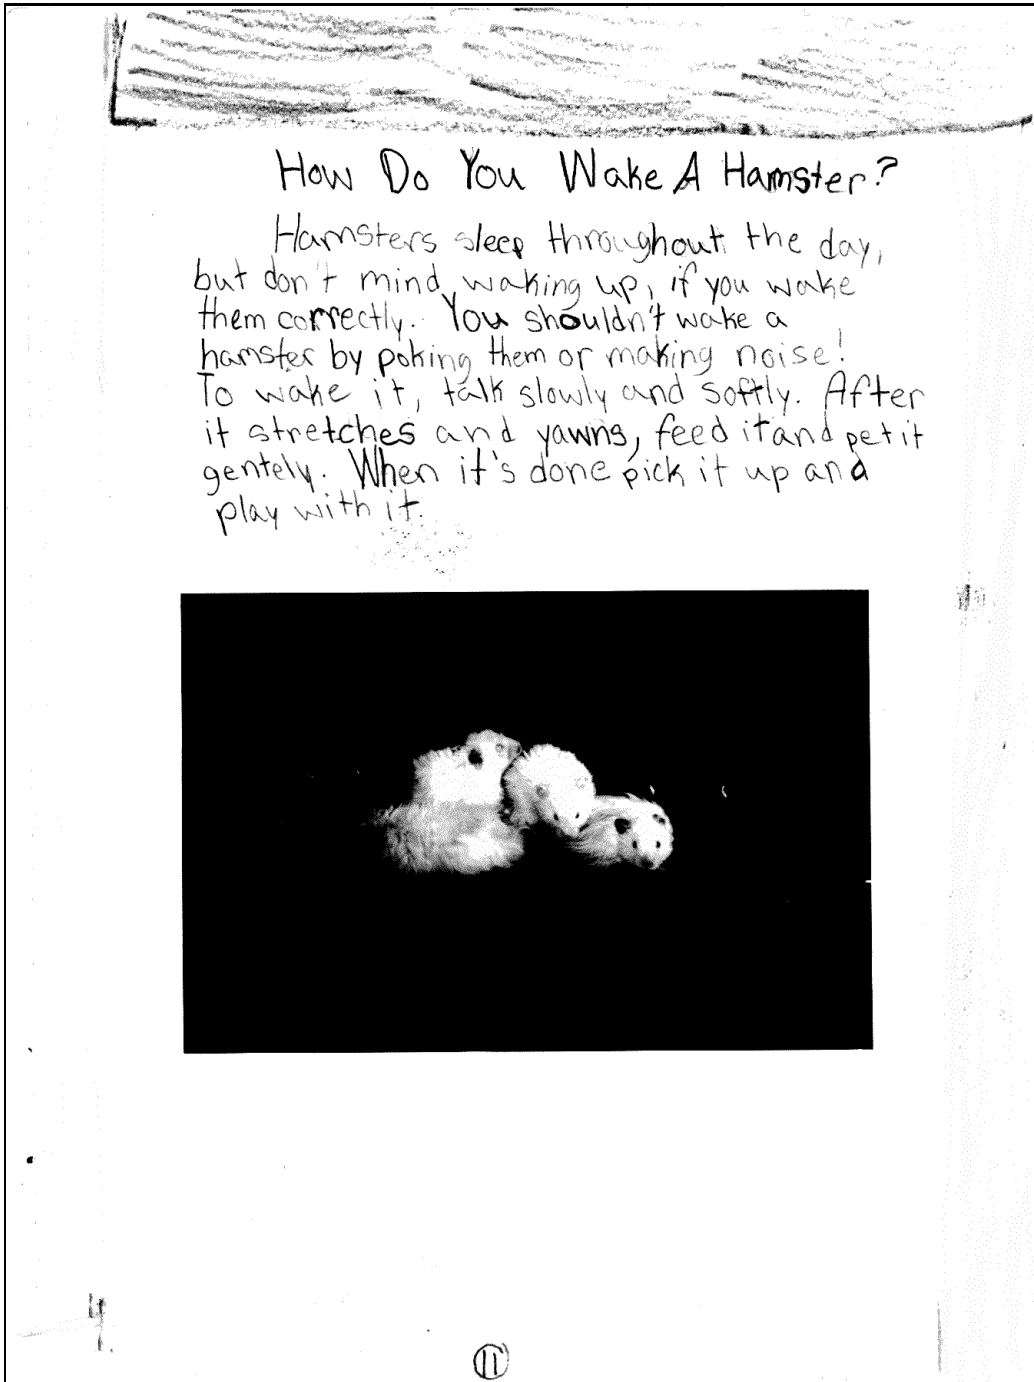 How Do You Wake A Hamster?
Hamsters sleep throughout the day,
but don't mind waking up, if you wake
them correctly. You shouldn't wake a
hamster by poking them or making noise!
To wake it, talk slowly and softly. After
it stretches and yawns, feed it and pet it
gentely. When it's done pick it up and
play with it.
11